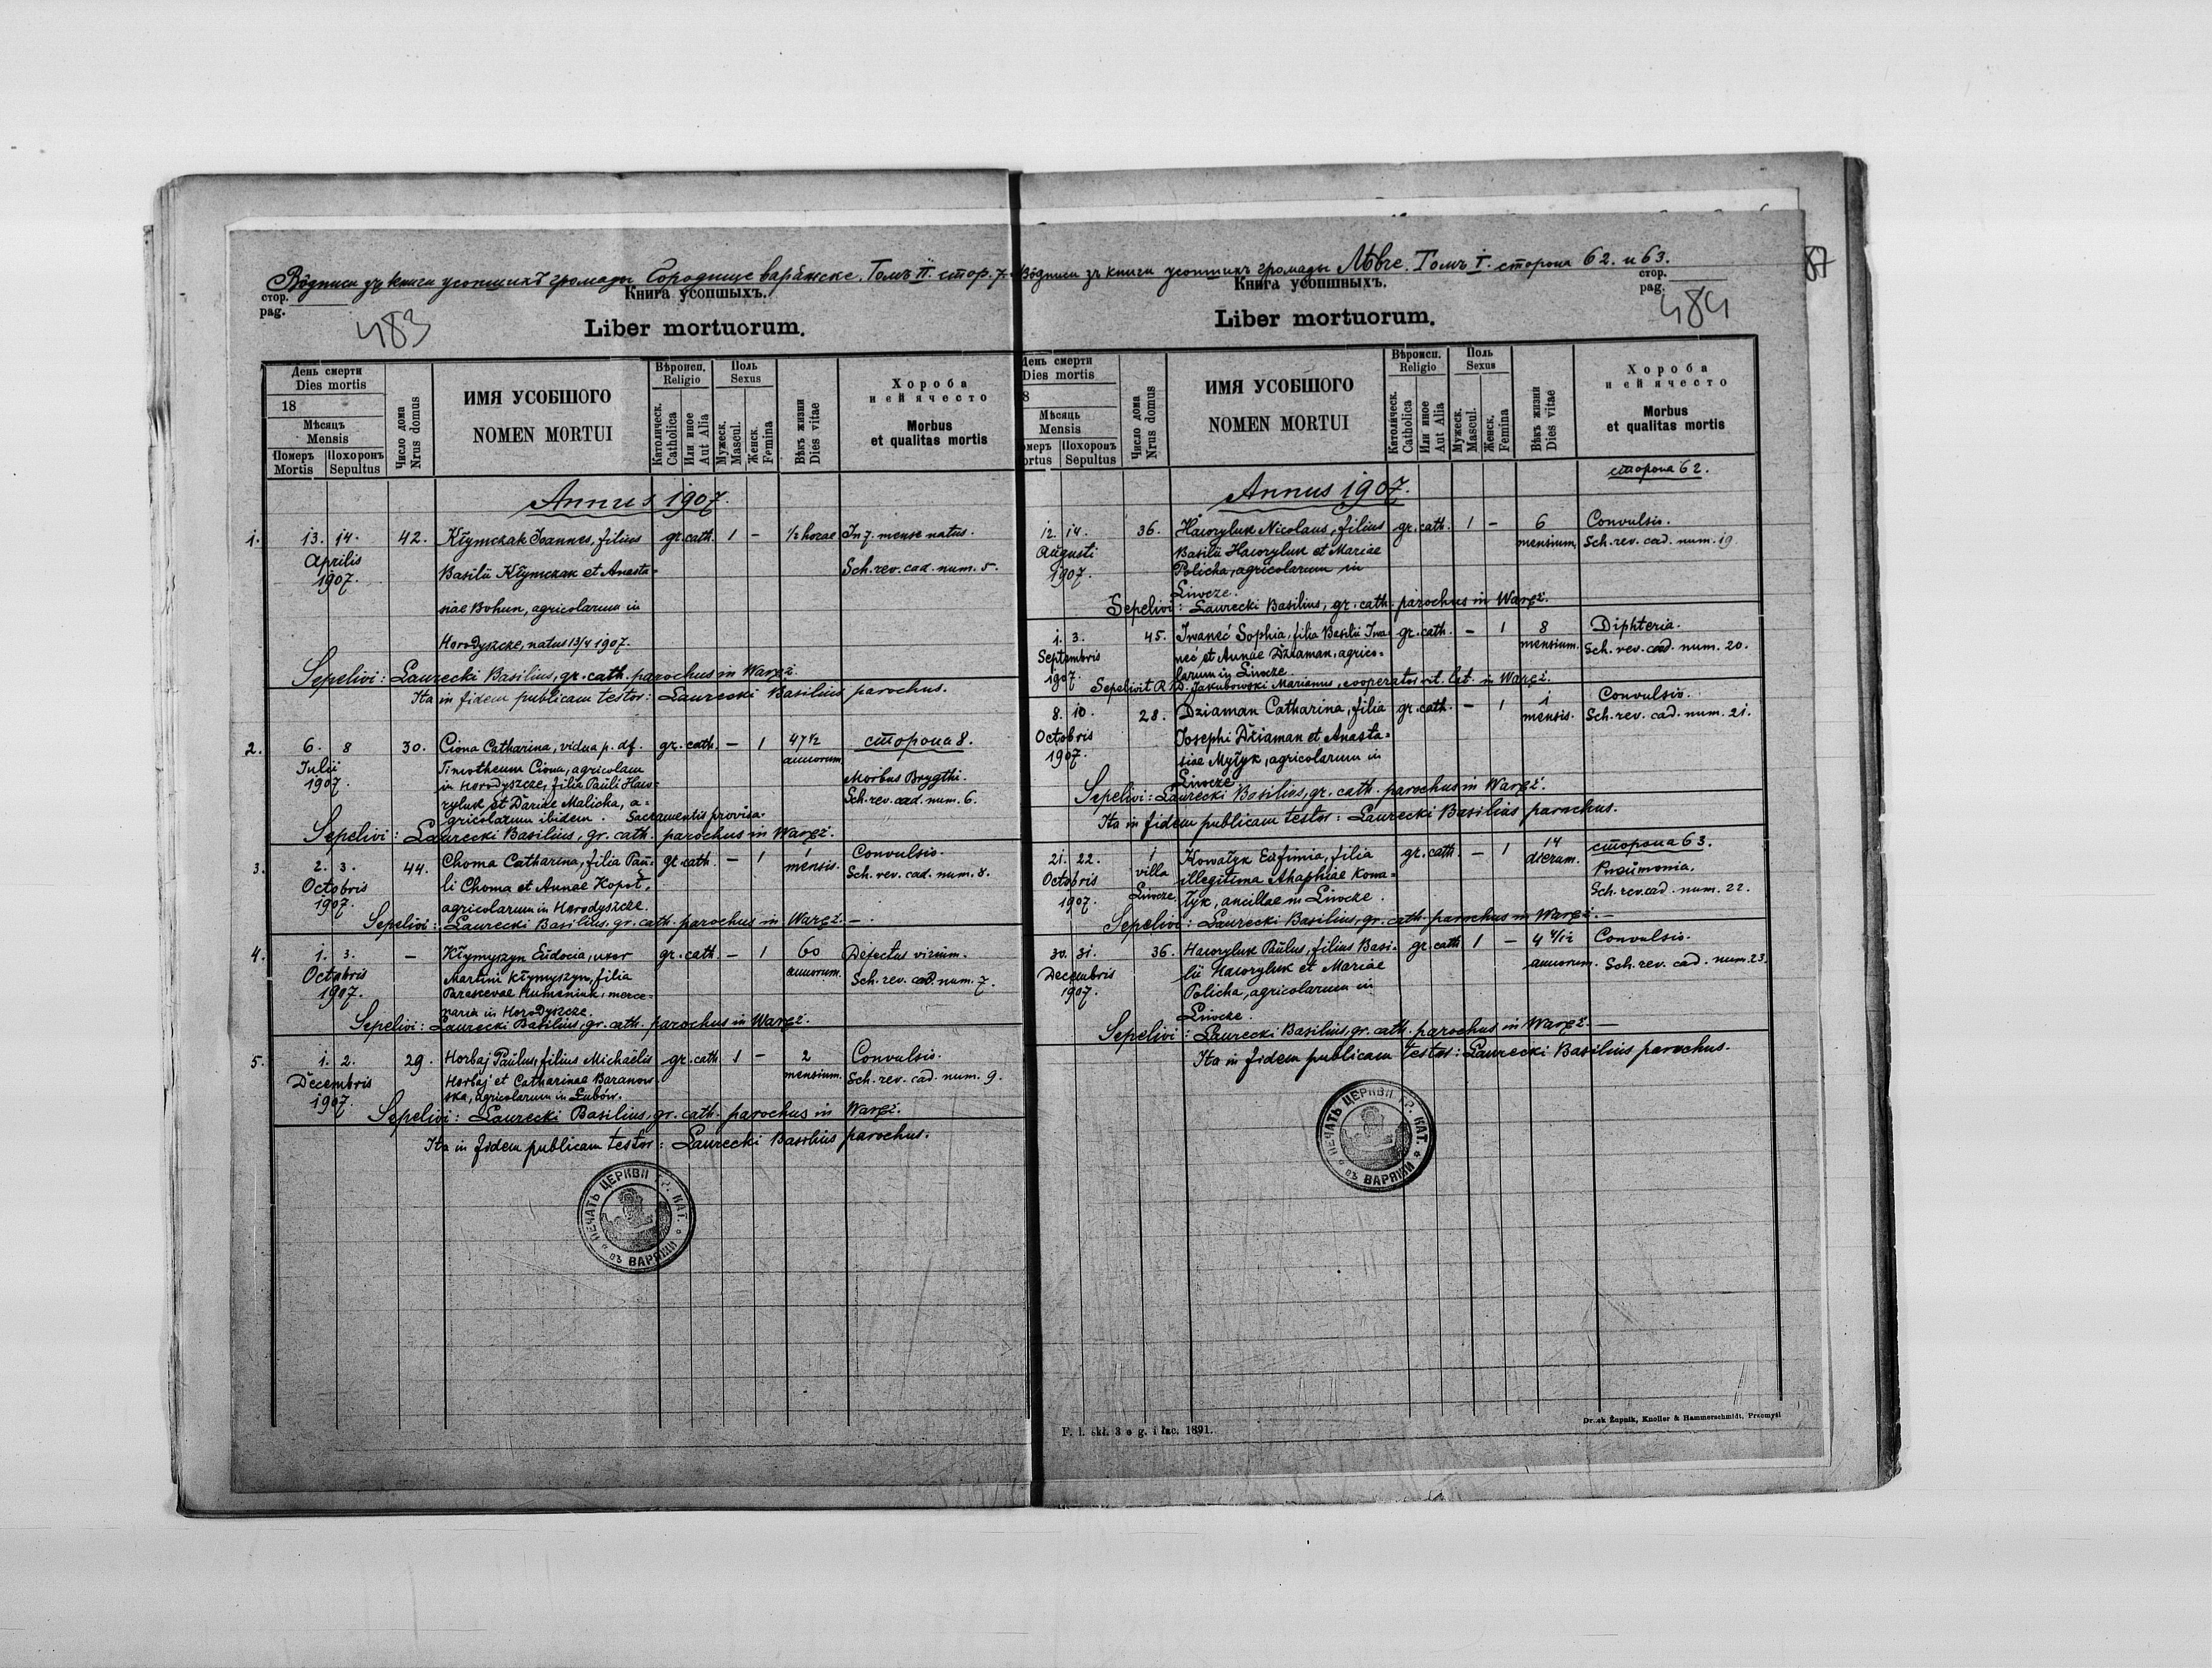 Вôдписи зъ книги усопшихъ громады Городище варяжске. Томъ II. стор. 7.
стор.
pag.
Книга усопшыхъ.
483
Liber mortuorum.
День смерти
Dies mortis
18
Мѣсяцъ
Mensis
Померъ Mortis
Похоронъ Sepultus
Число дома
Nrus domus
ИМЯ УСОБШОГО
NOMEN MORTUI
Вѣроисп.
Religio
Католическ.
Catholica
Или иное
Aut Alia
Поль
Sexus
Мужеск.
Mascul.
Женск.
Femina
Вѣкъ жизни
Dies vitae
Хороба
и еи ячесто
Morbus
et qualitas mortis
Annus 1907.
1. 13. 14. 42. Kłymczak Joannes, filius gr. cath. 1 - 1/2 horae In 7. mense natus.
Aprilis
1907. Basilii Kłymczak et Anasta= Sch. rev. cad. num. 5.
siae Bohun, agricolarum in
Horodyszcze, natus 13/4 1907.
Sepelivi: Laurecki Basilius, gr. cath. parochus in Waręż.
Ita in fidem publicam testor: Laurecki Basilius parochus.
2. 6. 8 30. Ciona Catharina, vidua p. df. gr. cath. - 1 47 1/2 сторона 8.
Julii Timotheum Ciona, agricolam annorum
1907. in Horodyszcze, filia Pauli Haw= Morbus Brygthi.
ryluk et Dariae Malicha, a= Sch. rev. cad. num. 6.
gricolarum ibidem. Sacramentis provisa.
Sepelivi: Laurecki Basilius, gr. cath. parochus in Waręż.
3. 2. 3. 44. Choma Catharina, filia Pau= gr. cath. - 1 1 Convulsio.
Octobris li Choma et Annae Kopoť, mensis. Sch. rev. cad. num. 8.
1907. agricolarum in Horodyszcze.
Sepelivi: Laurecki Basilius, gr. cath. parochus in Waręż. -
4. 1. 3. - Kłymyszyn Eudocia, uxor gr. cath. - 1 60 Defectus virium.
Octobris Martini Kłymyszyn, filia annorum. Sch. rev. cad. num. 7.
1907. Parascevae Humeniuk, merce=
naria in Horodyszcze.
Sepelivi: Laurecki Basilius, gr. cath. parochus in Waręż.
5. 1. 2. 29. Horbaj Paulus, filius Michaelis gr. cath. 1 - 2 Convulsio.
Decembris Horbaj et Catharinae Baranow mensium. Sch. rev. cad. num. 9.
1907. ska, agricolarum in Łubów.
Sepelivi: Laurecki Basilius, gr. cath. parochus in Waręż.
Ita in fidem publicam testor: Laurecki Basilius parochus.
ПЕЧАТЬ ЦЕРКВИ ГР. КАТ. въ ВАРЯЖИ
Вôдписи зъ книги усопшихъ громады Лѣвче. Томъ I. сторона 62. и 63.
87
стор.
pag.
Книга усопшныхъ.
484
Liber mortuorum.
День смерти
Dies mortis
8
Мѣсяць
Mensis
омеръ ortus
Похоронъ Sepultus
Число дома
Nrus domus
ИМЯ УСОБШОГО
NOMEN MORTUI
Вѣроисп.
Religio
Католическ.
Catholica
Или иное
Aut Alia
Поль
Sexus
Мужеск.
Mascul.
Женск.
Femina
Вѣкъ жизни
Dies vitae
Хороба
и еи ячесто
Morbus
et qualitas mortis
сторона 62.
Annus 1907.
12. 14. 36. Hawryluk Nicolaus, filius gr. cath. 1 - 6 Convulsio.
Augusti Basilii Hawryluk et Mariae mensium. Sch. rev. cad. num. 19.
1907. Policha, agricolarum in
Liwcze.
Sepelivi: Laurecki Basilius, gr. cath. parochus in Waręż.
1. 3. 45. Iwaneć Sophia, filia Basilii Iwa= gr. cath. - 1 8 Diphteria.
Septembris neć et Annae Dziaman, agrico= mensium. Sch. rev. cad. num. 20.
1907. larum in Liwcze.
Sepelivit R. D. Jakubowski Marianus, cooperator rit. lat. in Waręż.
8. 10. 28. Dziaman Catharina, filia gr. cath. - 1 1 Convulsio.
Octobris Josephi Dziaman et Anasta= mensis. Sch. rev. cad. num. 21.
1907. siae Myłyk, agricolarum in
Liwcze.
Sepelivi: Laurecki Basilius, gr. cath. parochus in Waręż.
Ita in fidem publicam testor: Laurecki Basilius parochus.
21. 22. 1 Kowałyk Eufimia, filia gr. cath. - 1 14 сторона 63.
Octobris villa illegitima Ahaphiae Kowa= dierum. Pneumonia.
1907. Liwcze łyk, ancillae in Liwcze. Sch. rev. cad. num. 22.
Sepelivi: Laurecki Basilius, gr. cath. parochus in Waręż. -
30. 31. 36. Hawryluk Paulus, filius Basi= gr. cath 1 - 4 4/12 Convulsio.
Decembris lii Hawryluk et Mariae annorum. Sch. rev. cad. num. 23.
1907. Policha, agricolarum in
Liwcze.
Sepelivi: Laurecki Basilius, gr. cath. parochus in Waręż. -
Ita in fidem publicam testor: Laurecki Basilius parochus.
ПЕЧАТЬ ЦЕРКВИ ГР. КАТ. въ ВАРЯЖИ
F. l. skł. 3 e g. i łac. 1891.
Druk Żupnik, Knoller & Hammerschmidt, Przemyśl